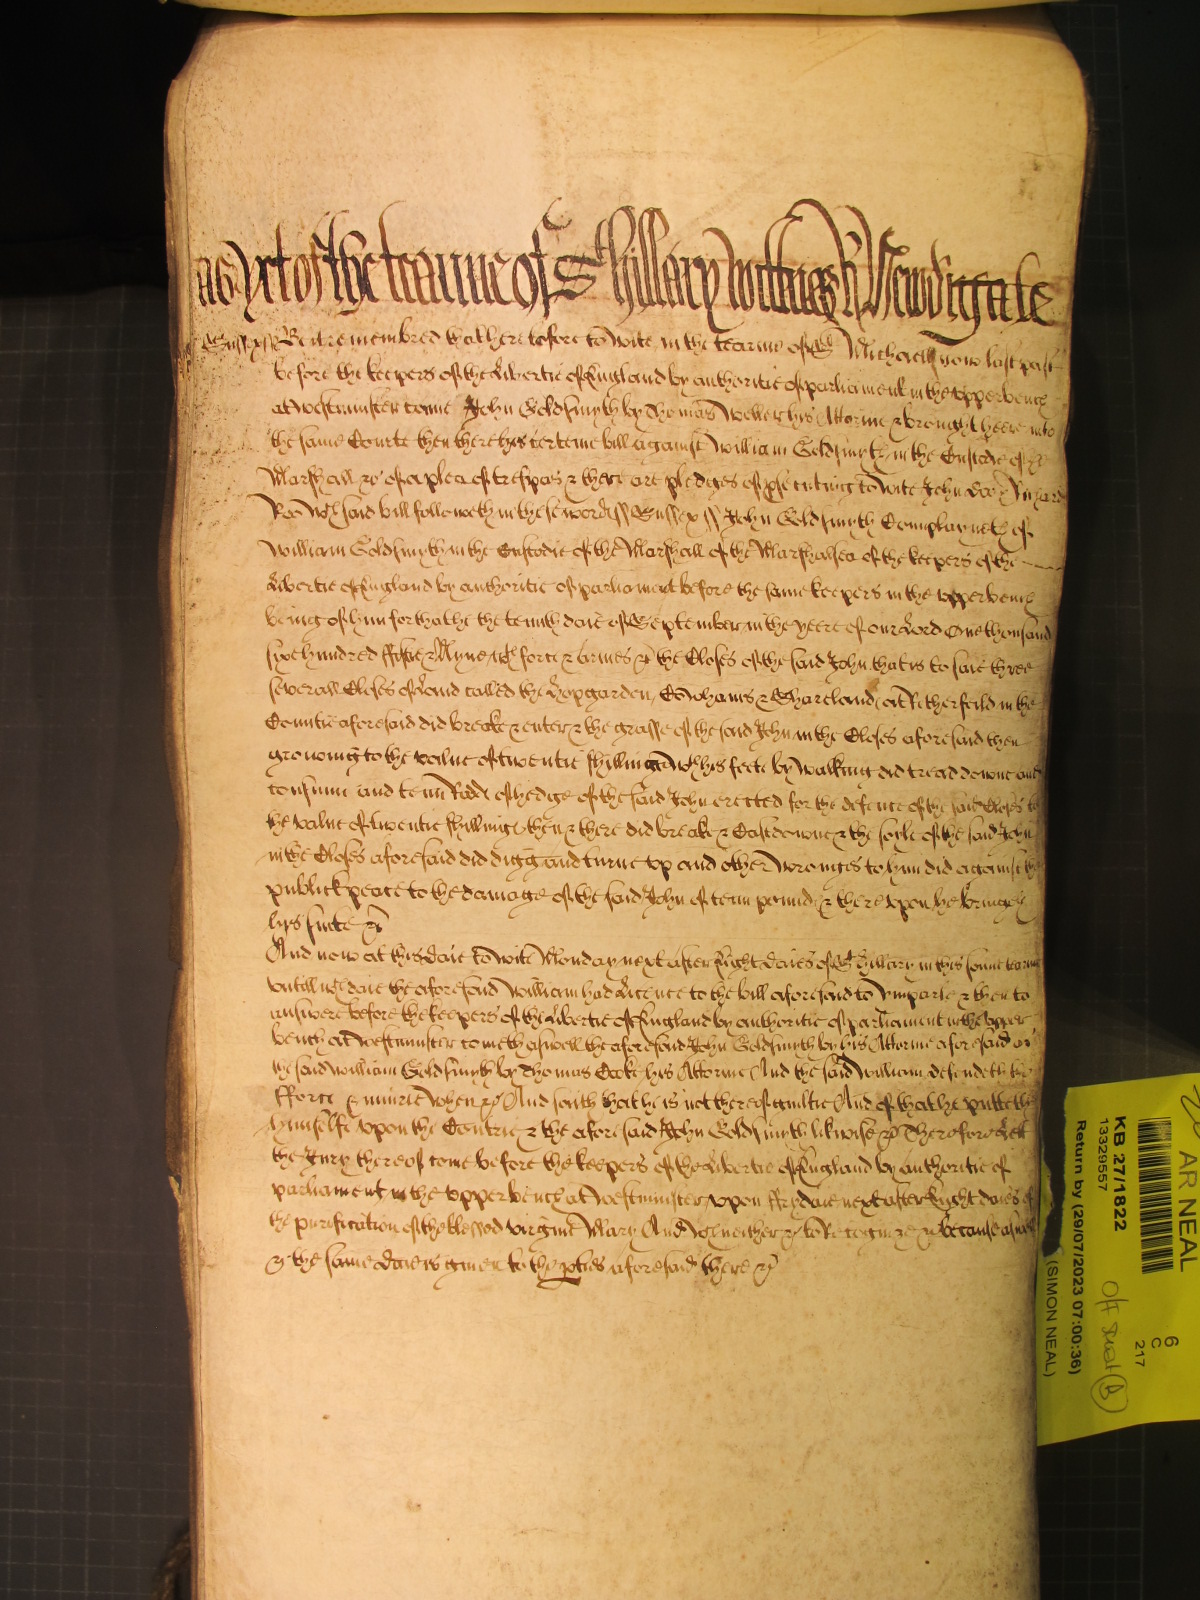 as yet of the tearme of St hillary wittnes R Newdigate
Sussex ss Be it remembred that heretofore to wite in the tearme of St Michaell now last past
before the keepers of the Libertie of England by authoritie of parliament in the upper bench
at westminster came John Goldsmyth by Thomas Weller his Attorne & brought heere into
the same Courte then there his certeine bill against william Goldsmyth in the Custodie of the
Marshall &c of a plea of trespas & there are pledges of prosecuting to wite John Doo & Richard
Roo wch said bill followeth in these words ss Sussex ss John Goldsmyth Complayneth of
william Goldsmyth in the Custodie of the Marshall of the Marshalsea of the keepers of the
Libertie of England by authoritie of parliament before the same keepers in the upper bench
being of him for that he the tenth daie of September in the yeere of our Lord One thousand
six hundred fiftie & Nyne wth force & armes &c the Closes of the said John that is to saie three
severall Closes of Land called the Hopgarden, Cowhams & Shareland at Retherfeild in the
Countie aforesaid did breake & enter & the grasse of the said John in the Closes aforesaid then
growing to the value of twentie shillings wth his feete by walking did tread downe and
consume and tenn Rodds of hedge of the said John erected for the defence of the said Closes to
the value of twentie shillings then & there did breake & Cast downe & the soyle of the said John
in the Closes aforesaid did digg and turne up and other wronges to him did against the
publick peace to the damage of the said John of tenn pounds & thereupon he bringeth
his suite &c
And now at this daie to wite Monday next after Eight daies of St hillary in this same tearme
untill wch daie the aforesaid william had Licence to the bill aforesaid to Imparle & then to
answere before the keepers of the Libertie of England by authoritie of parliament in the upper
bench at westminster cometh aswell the aforesaid John Goldsmyth by his Attorne aforesaid as
the said william Goldsmyth by Thomas Cocke his Attorne And the said william defendeth the
fforce & iniurie when &c And saith that he is not thereof guiltie And of that he putteth
himselfe upon the Contrie & the aforesaid John Goldsmyth likwise &c Therefore Let
the Jury thereof come before the keepers of the Libertie of England by authoritie of
parliament in the upper bench at westminster upon ffrydaie next after Eight daies of
the purification of the blessed virgine Mary And wch neither &c to Recognize &c because aswell
&c the same daie is given to the pties aforesaid there &c
AR NEAL
KB 27/1822
13329557
Return by (29/07/2023 07:00:36)
(SIMON NEAL)
6
C
217